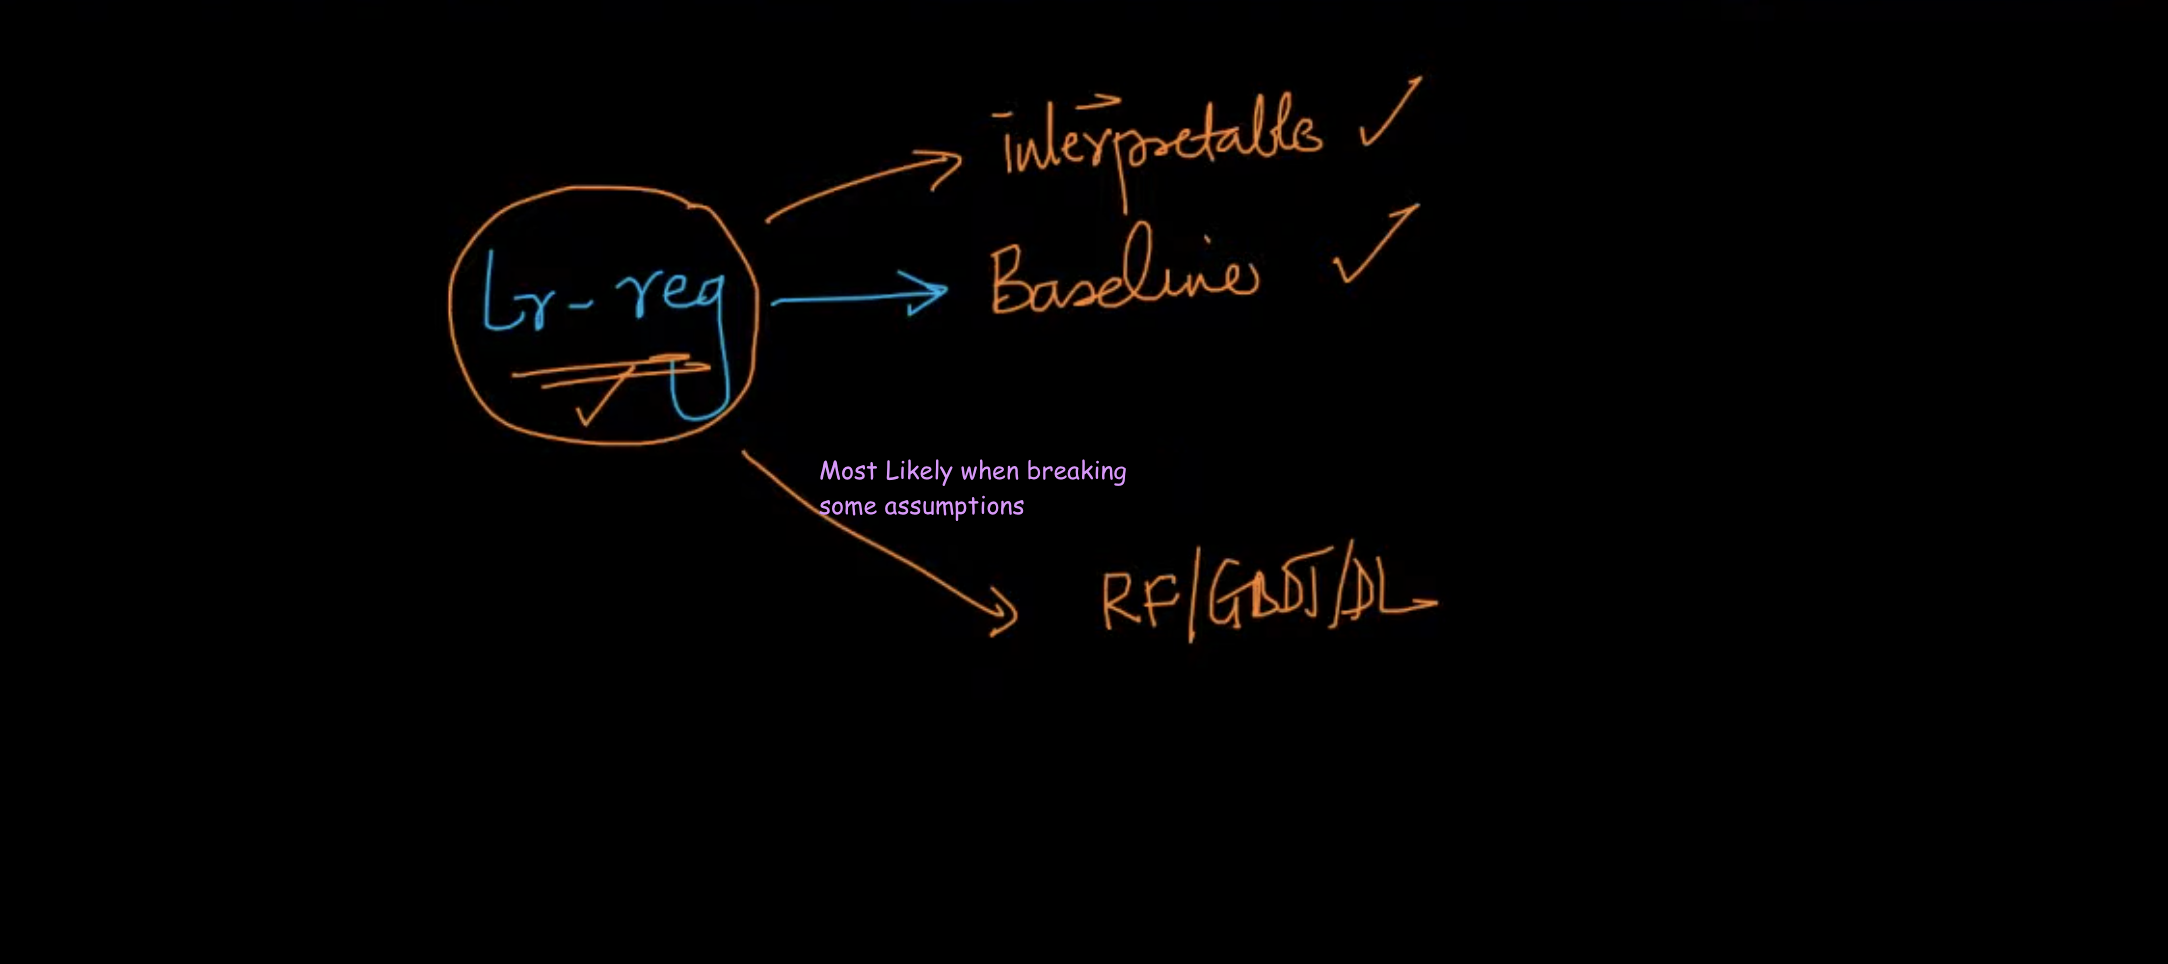 interpretable
Lr-reg
Baseline
Most Likely when breaking
some assumptions
RF/GBDT/DL